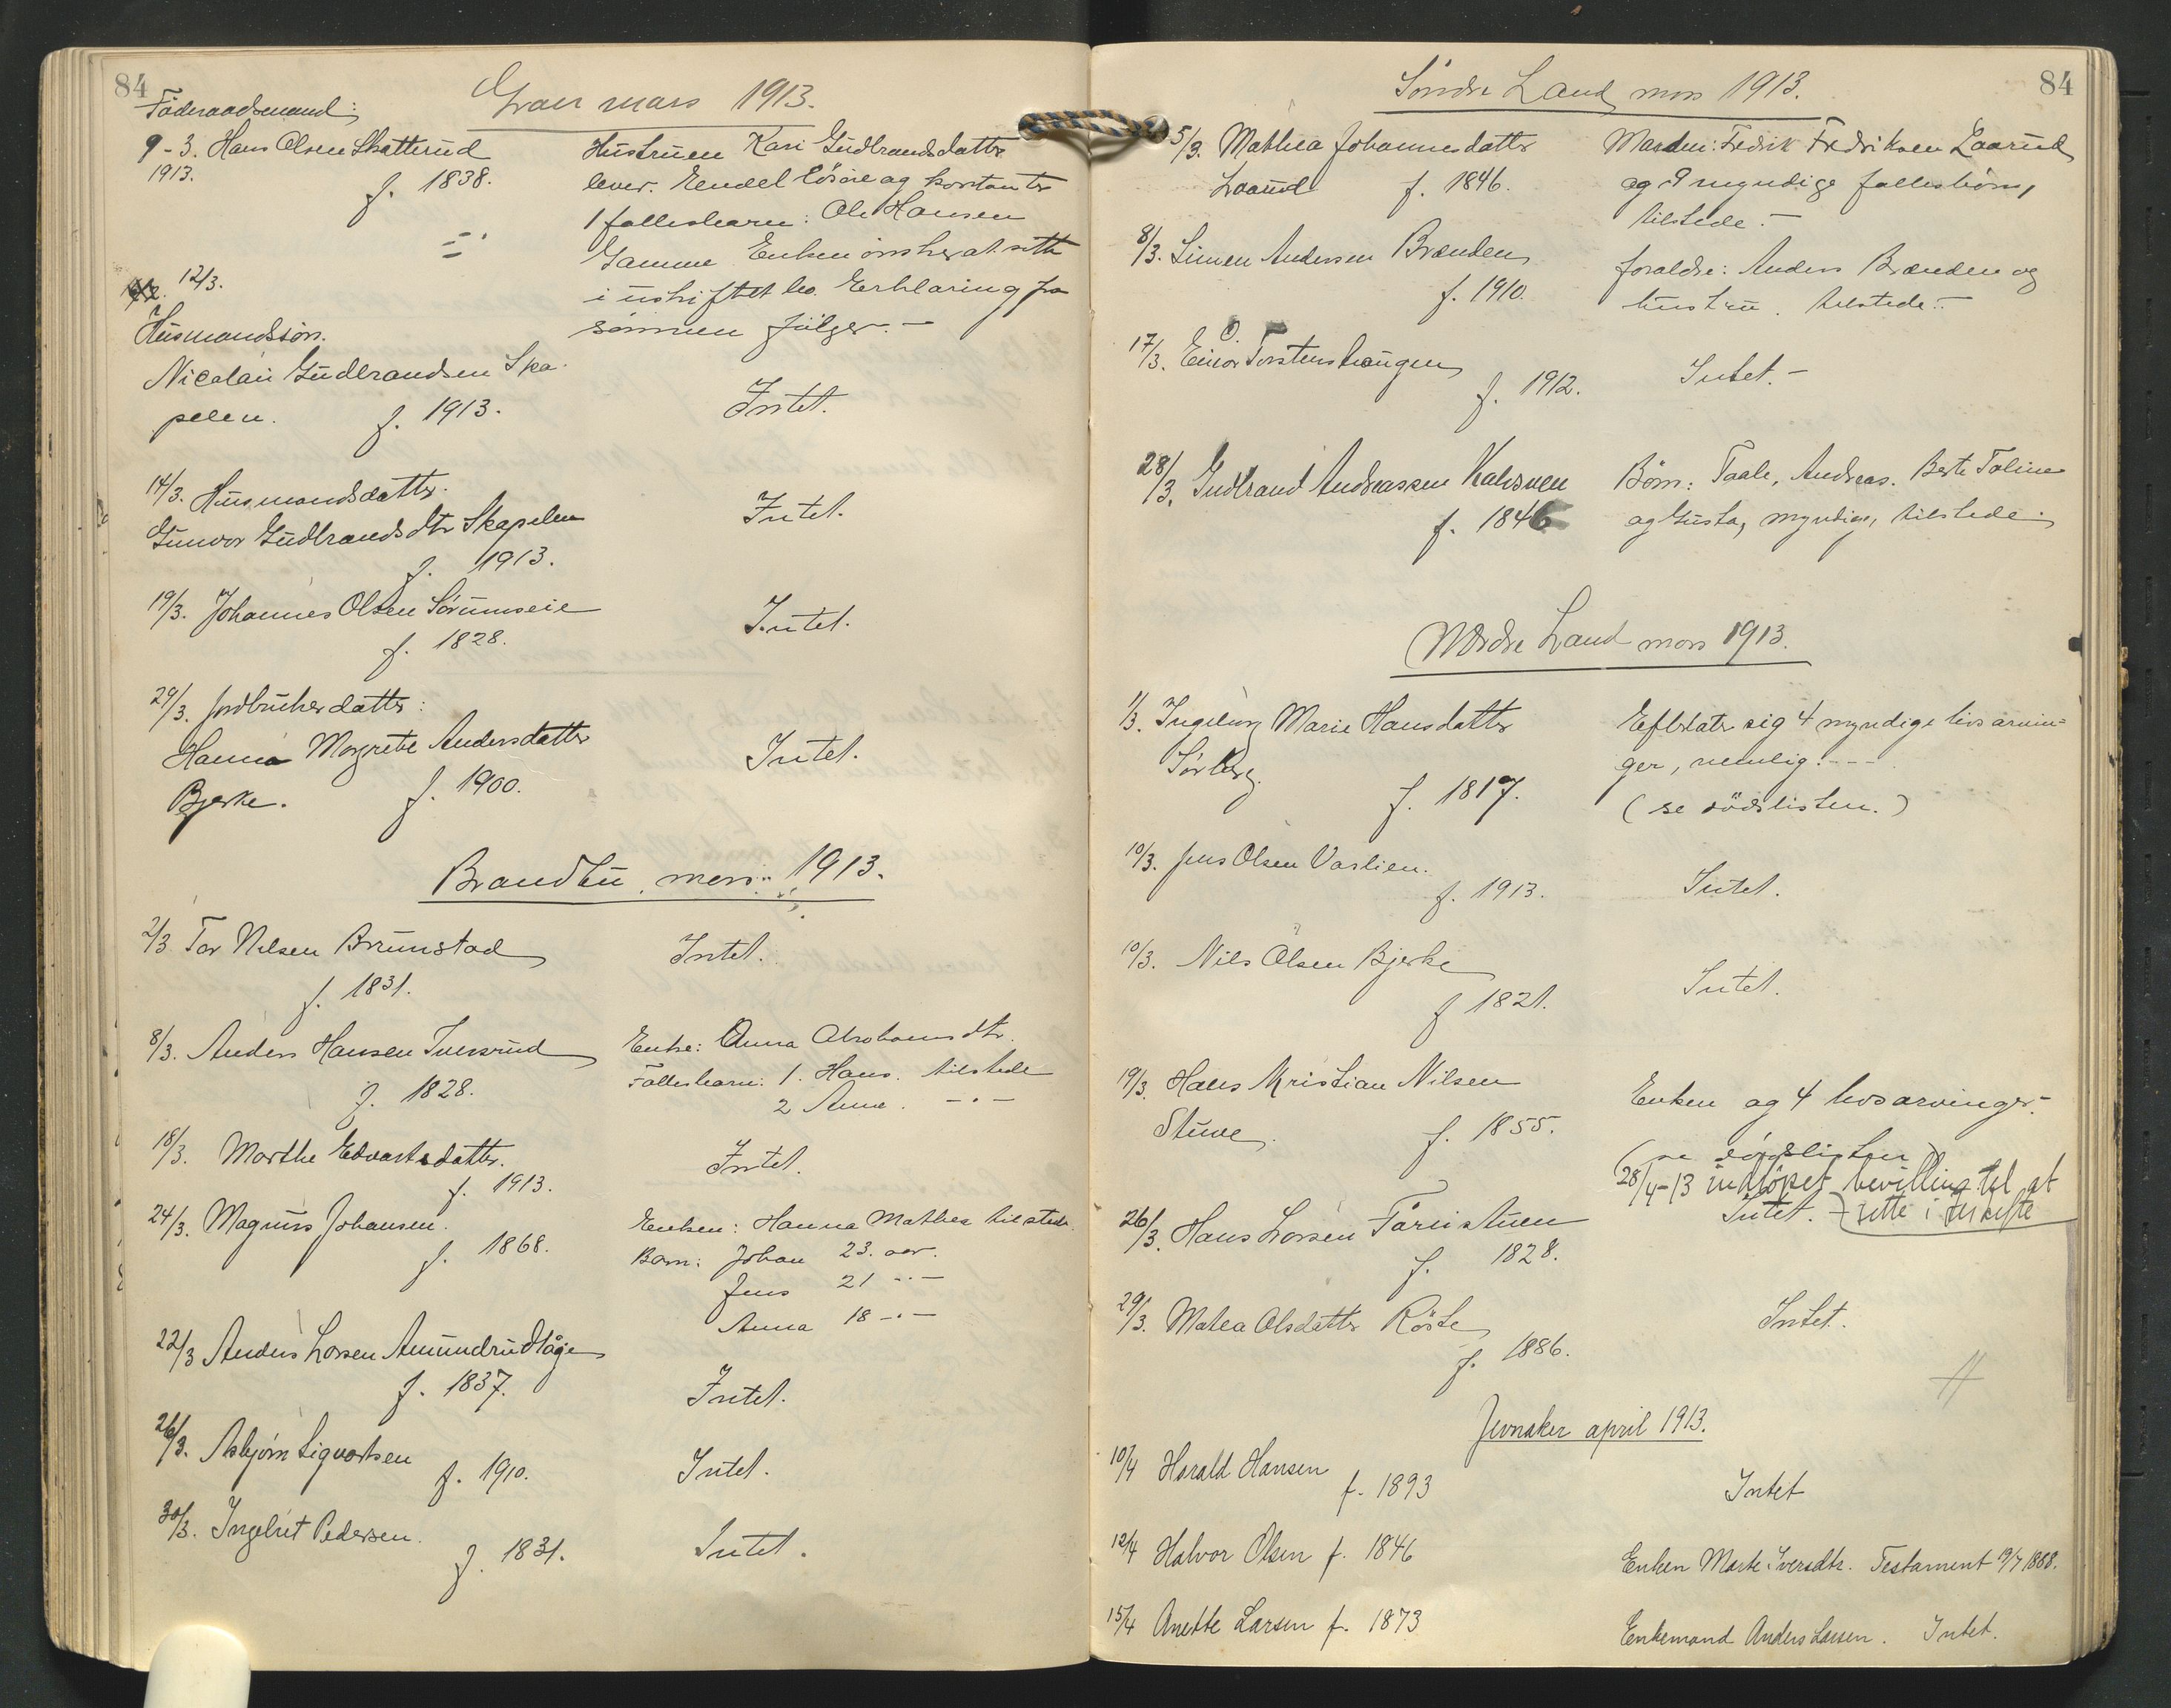 84
Gran mars 1913.
Föderaadsmand:
9-3. Hans Olsen Skatterud
1913.
f. 1838.
Hustruen Kari Gudbrandsdatter
lever. Eendel lösöre og kontanter
1 fellesbarn: Ole Hansen
Gamme Enken önsker at sitte
i uskiftet bo. Erklæring fra
sönnen fölger.-
12/3.
Husmandssön.
Nicolai Gudbrandsen Ska-
pelen. f. 1913.
Intet.
14/3. Husmandsdatter.
Gunvor Gudbrandsdtr Skapelen
f. 1913.
Intet.
19/3. Johannes Olsen Sörumseie
f. 1828.
Intet.
29/3. Jordbrukerdatter:
Hanna Margrete Andersdatter
Bjerke. f. 1900.
Intet.
Brandbu mars 1913.
2/3 Tor Nilsen Brunstad
f. 1831.
Intet.
8/3. Anders Hansen Iversrud
f. 1828.
Enke: Anna Abrahamsdtr.
Fellesbarn: 1. Hans. tilstede
2 Anne. -"-
18/3. Marthe Edvartsdatter.
f. 1913.
Intet.
24/3. Magnus Johansen.
f. 1868.
Enken: Hanna Mathea tilstede.
Barn: Johan 23. aar.
Jens 21 -"-
Anna 18 -"-
22/3 Anders Larsen Amundrudlåge
f. 1837.
Intet.
26/3. Asbjörn Sigvartsen
f. 1910.
Intet.
30/3. Ingebret Pedersen.
f. 1831.
Intet.
84
Söndre Land mars 1913.
5/3. Mathea Johannesdatter
Laarud f. 1846.
Manden: Fredrik Fredriksen Laarud
og 9 myndige fellesbörn,
tilstede.-
8/3. Simen Andersen Brænden
f. 1910.
foreldre: Anders Brænden og
hustru. tilstede.-
17/3. Einar O. Torstenshaugen
f. 1912.
Intet.-
28/3. Gudbrand Andreassen Kalvsveen
f. 1846
Börn: Paale, Andreas. Berte Toline
og Gusta, myndige, tilstede.
Nordre Land mars 1913.
1/3. Ingeborg Marie Hansdatter
Sörberg.
f. 1817.
Efterlater sig 4 myndige livsarvin-
ger, nemlig:---
(se dödslisten.)
10/3. Jens Olsen Varlien.
f. 1913.
Intet.
10/3. Nils Olsen Bjerke
f 1821.
Intet.
19/3. Hans Kristian Nilsen
Stuve. f. 1855.
Enken og 4 livsarvinger.-
(se dödslisten)
28/4-13 indlöpet bevilling til at
sitte i uskifte
26/3. Hans Larsen
f. 1828.
Intet.-
29/3. Matea Olsdatter Röste
f. 1886.
Intet.
Jevnaker april 1913.
10/4 Harald Hansen
f. 1893
Intet
12/4 Halvor Olsen f. 1846
Enken Marte Iversdtr. Testament 19/7 1888.
15/4 Anette Larsen f. 1873
Enkemand Anders Larsen. Intet.